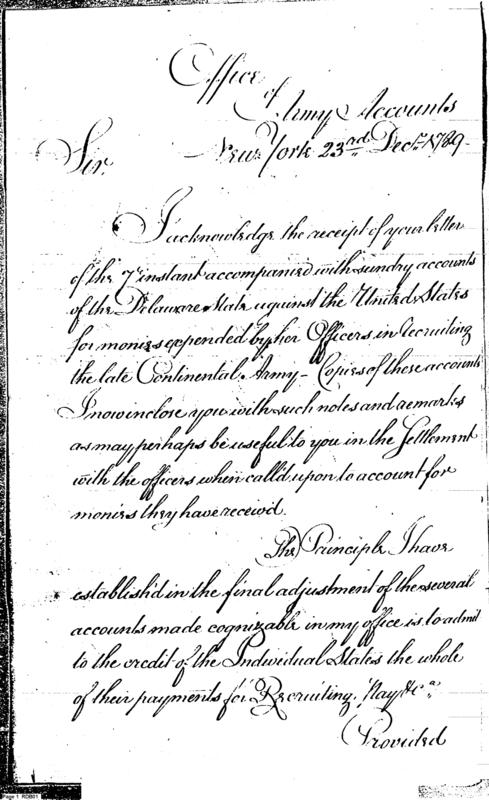 Office
of
Army Accounts
New York 23rd. Decr. 1789.
Sir.
I acknowledge the receipt of your letter
of the 7th instant accompanied with sundry accounts
of the Delaware State against the United States
for monies expended by her Officers in Recruiting
the late Continental Army - Copies of these accounts
I now inclose you with such notes and remarks
as may perhaps be useful to you in the Settlement
with the officers when call'd upon to account for
monies they have receiv'd.
The Principle I have
establish'd in the final adjustment of the several
accounts made cognizable in my office is to admit
to the credit of the Individual States the whole
of their payments for Recruiting, Pay &ca
Provided